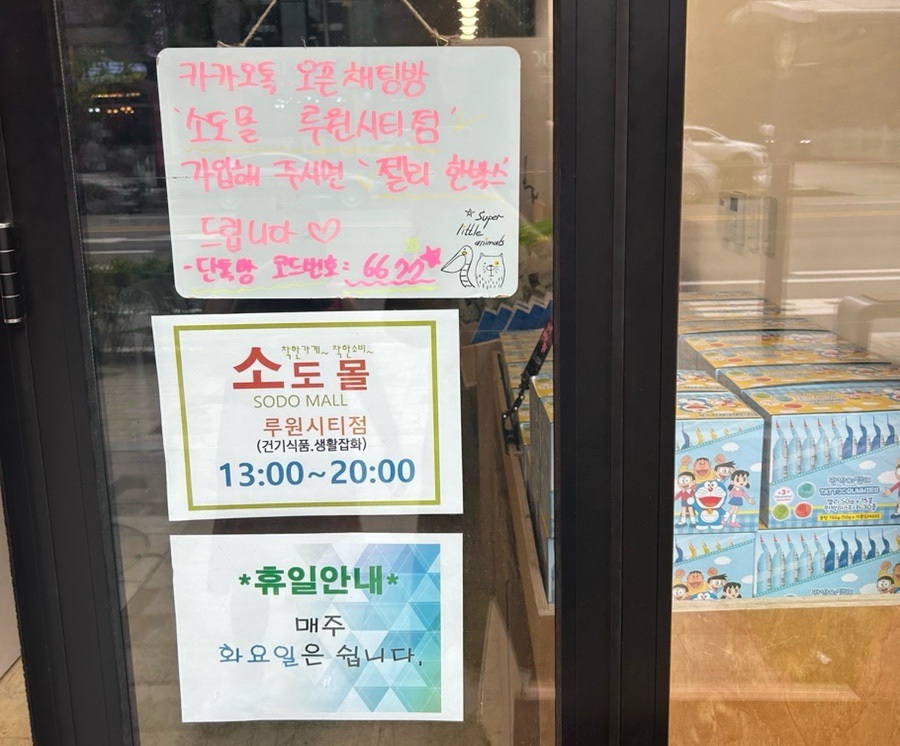 카카오톡 오픈채팅방
'소도몰 루원시티점'
가입해 주시면 '젤리 한박스'
드립니다 ♡
-단톡방 코드번호: 6622
Super
little
animals
착한가게~ 착한소비~
소도몰
SODO MALL
루원시티점
(건기식품,생활잡화)
13:00~20:00
*휴일안내*
매주
화요일은 쉽니다.
TATTOO GUMMIES